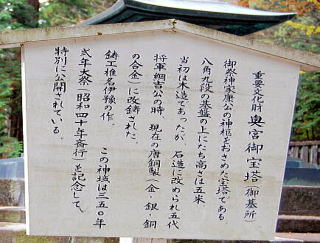 重要文化財 奥宮御宝塔(御墓所)
御祭神家康公の神柩をおさめた宝塔である
八角九段の基盤の上にたち高さは五米
当初は木造であったが、石造に改められ五代
将軍綱吉公の時 現在の唐銅製(金・銀・銅
の合金)に改鋳された。
鋳工椎名伊豫の作。
この神域は三五〇年
式年大祭(昭和四十年斎行)を記念して、
特別に公開されている。